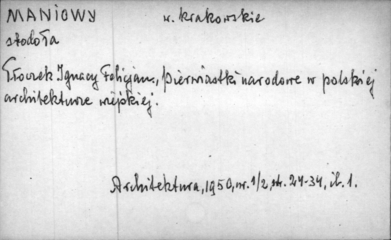 MANIOWY w. krakowskie
stodoła
Tłoczek Ignacy Felicjan, Pierwiastki narodowe w polskiej
architekturze wiejskiej.
Architektura, 1950, nr. 1/2, str. 24-34, il. 1.